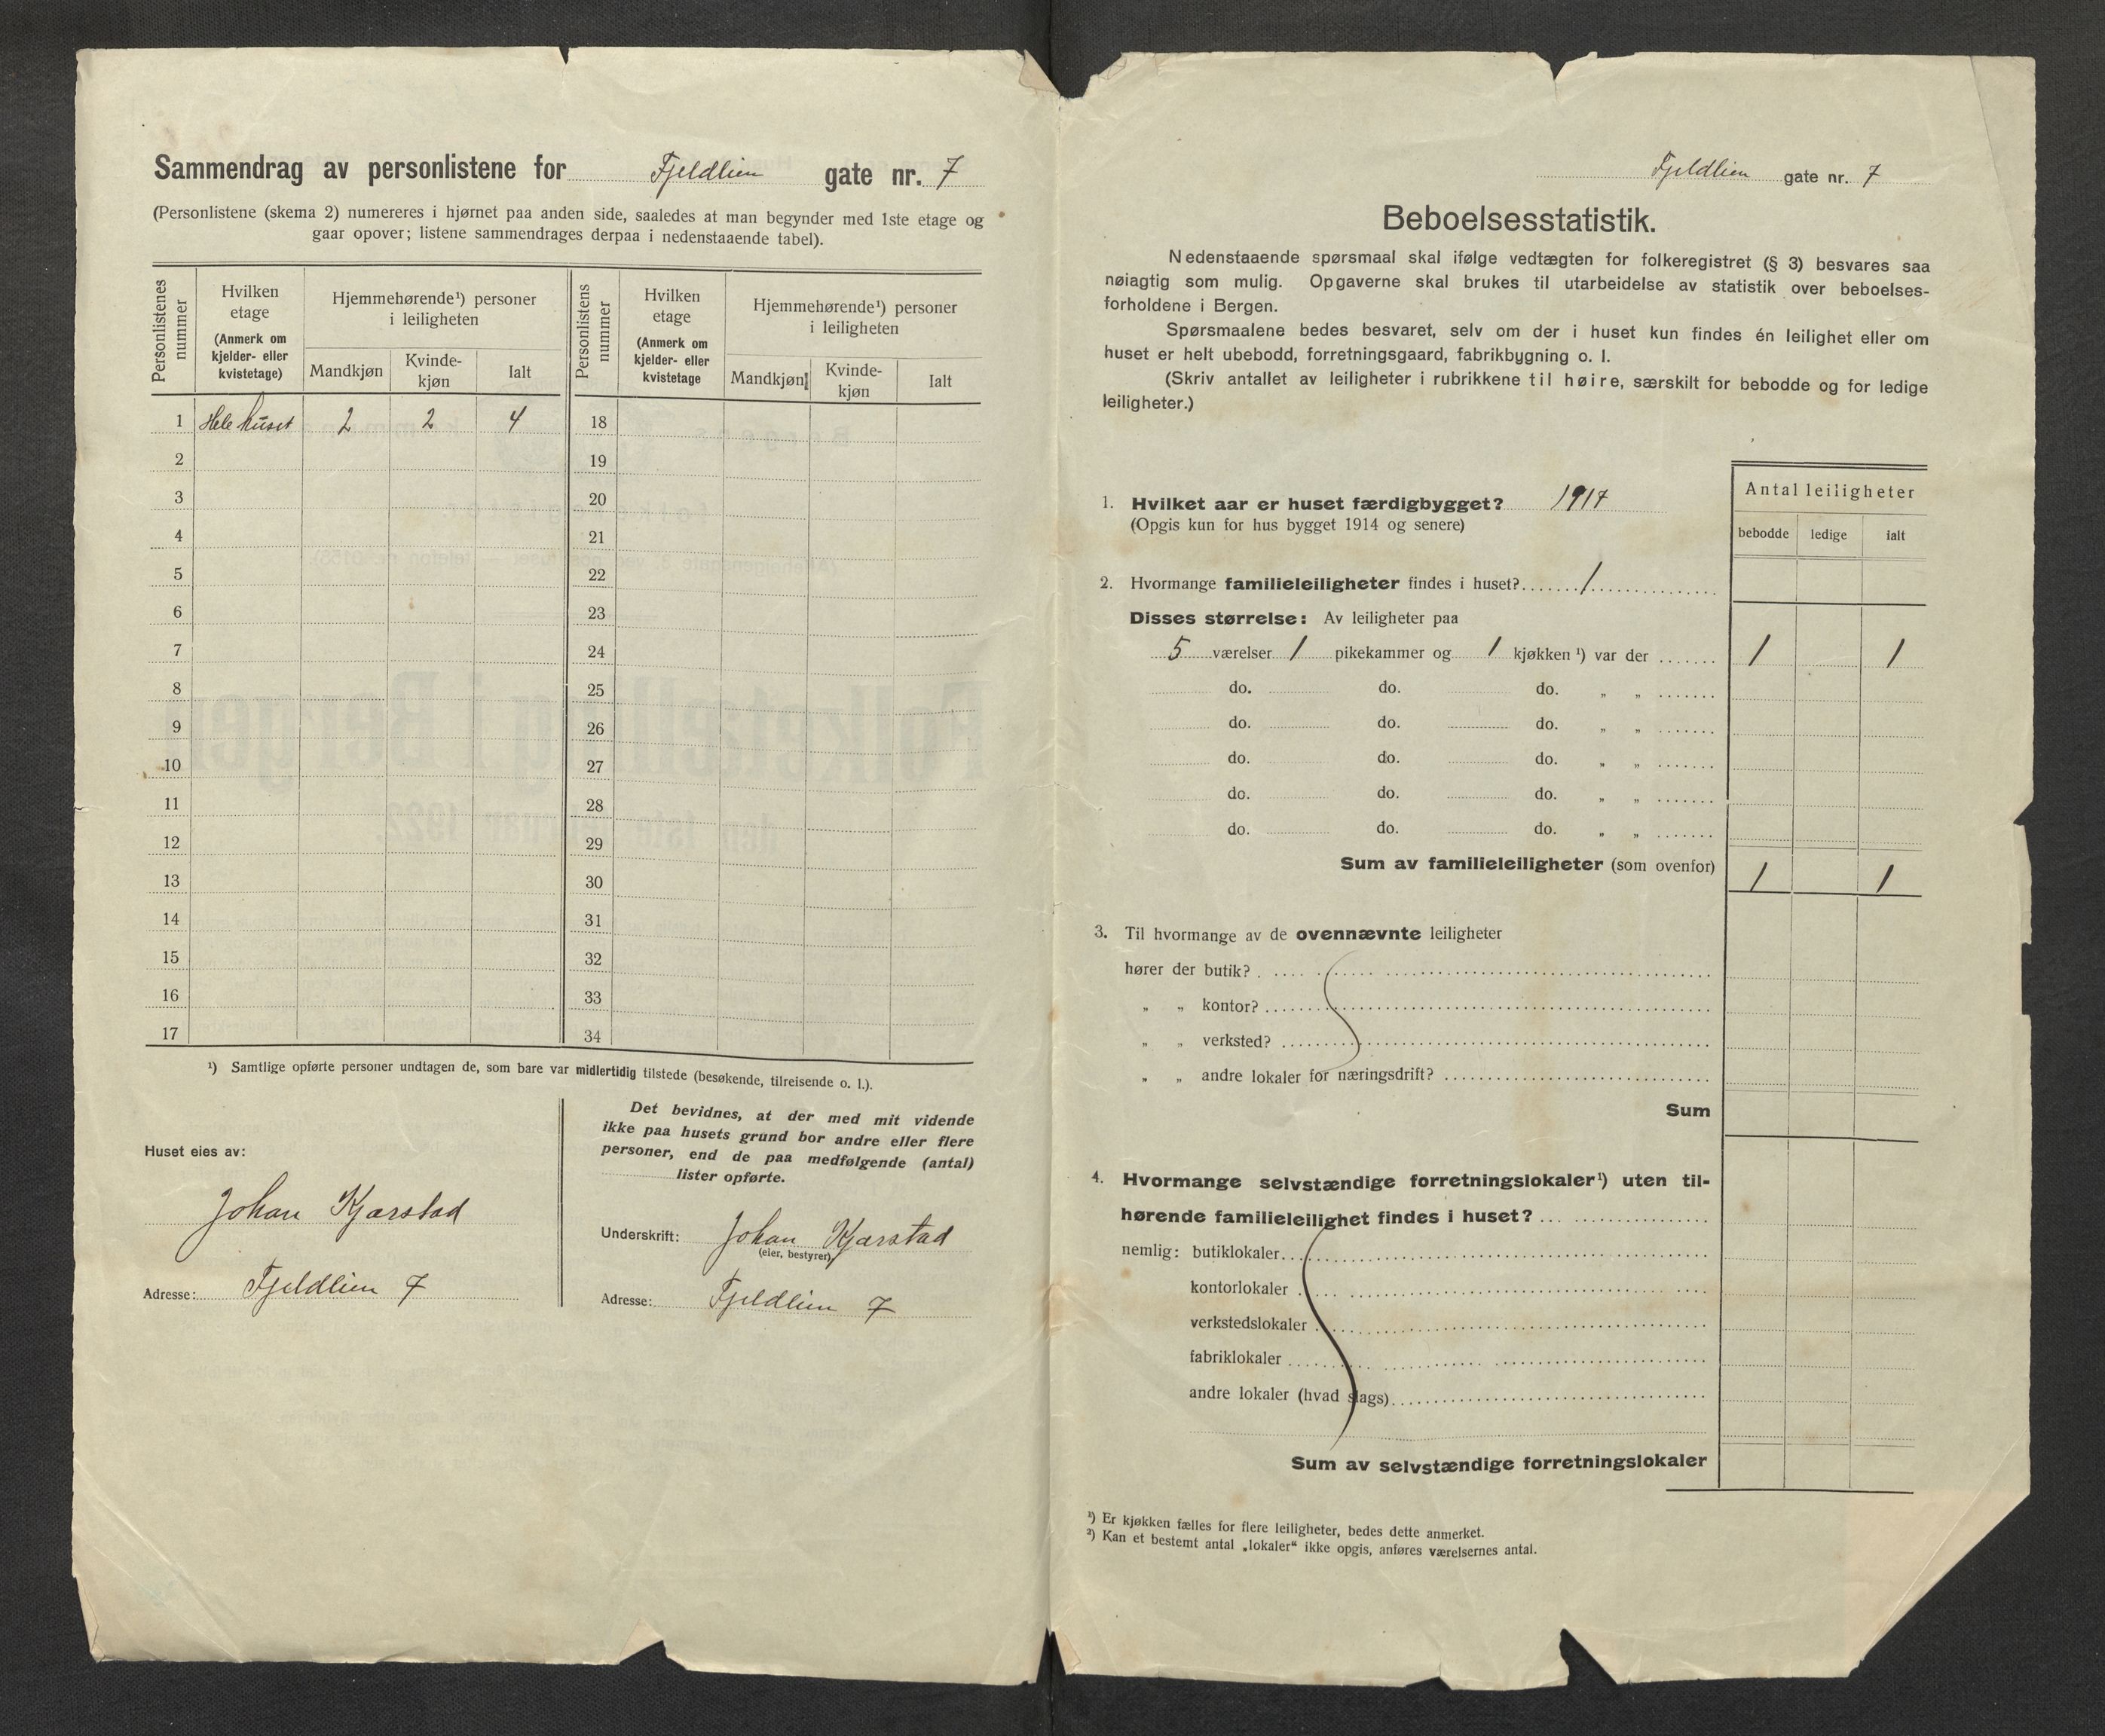 Sammendrag av personlistene for Fjeldlien gate nr. 7
(Personlistene (skema 2) numereres i hjørnet paa anden side, saaledes at man begynder med 1ste etage og
gaar opover; listene sammendrages derpaa i nedenstaaende tabel).
Personlistenes nummer
Hvilken etage
(Anmerk om kjelder- eller kvistetage)
Hjemmehørende¹) personer i leiligheten
Mandkjøn
Kvindekjøn
Ialt
Personlistens nummer
Hvilken etage
(Anmerk om kjelder- eller kvistetage
Hjemmehørende¹) personer i leiligheten
Mandkjøn
Kvinde-kjøn
Ialt
1 Hele huset 2 2 4 18
2 19
3 20
4 21
5 22
6 23
7 24
8 25
9 26
10 27
11 28
12 29
13 30
14 31
15 32
16 33
17 34
¹) Samtlige opførte personer undtagen de, som bare var midlertidig tilstede (besøkende, tilreisende o. l.).
Huset eies av:
Johan Kjærstad
Adresse: Fjeldlien 7
Det bevidnes, at der med mit vidende
ikke paa husets grund bor andre eller flere
personer, end de paa medfølgende (antal)
lister opførte.
Underskrift: Johan Kjærstad
(eier, bestyrer)
Adresse: Fjeldlien 7
Fjeldlien gate nr. 7
Beboelsesstatistik.
Nedenstaaende spørsmaal skal ifølge vedtægten for folkeregistret (§ 3) besvares saa
nøiagtig som mulig. Opgaverne skal brukes til utarbeidelse av statistik over beboelses-
forholdene i Bergen.
Spørsmaalene bedes besvaret, selv om der i huset kun findes én leilighet eller om
huset er helt ubebodd, forretningsgaard, fabrikbygning o. l.
(Skriv antallet av leiligheter i rubrikkene til høire, særskilt for bebodde og for ledige
leiligheter.)
Antal leiligheter
bebodde ledige ialt
1. Hvilket aar er huset færdigbygget? 1917
(Opgis kun for hus bygget 1914 og senere)
2. Hvormange familieleiligheter findes i huset? 1
Disses størrelse: Av leiligheter paa
5 værelser 1 pikekammer og 1 kjøkken ¹) var der 1 1
do. do. do. „ „
do. do. do. „ „
do. do. do. „ „
do. do. do. „ „
do. do. do. „ „
Sum av familieleiligheter (som ovenfor) 1 1
3. Til hvormange av de ovennævnte leiligheter
hører der butik?
„ „ kontor?
„ „ verksted?
„ „ andre lokaler for næringsdrift?
Sum
4. Hvormange selvstændige forretningslokaler¹) uten til-
hørende familieleilighet findes i huset?
nemlig: butiklokaler
kontorlokaler
verkstedslokaler
fabriklokaler
andre lokaler (hvad slags)
Sum av selvstændige forretningslokaler
¹) Er kjøkken fælles for flere leiligheter, bedes dette anmerket.
²) Kan et bestemt antal „lokaler“ ikke opgis, anføres værelsernes antal.